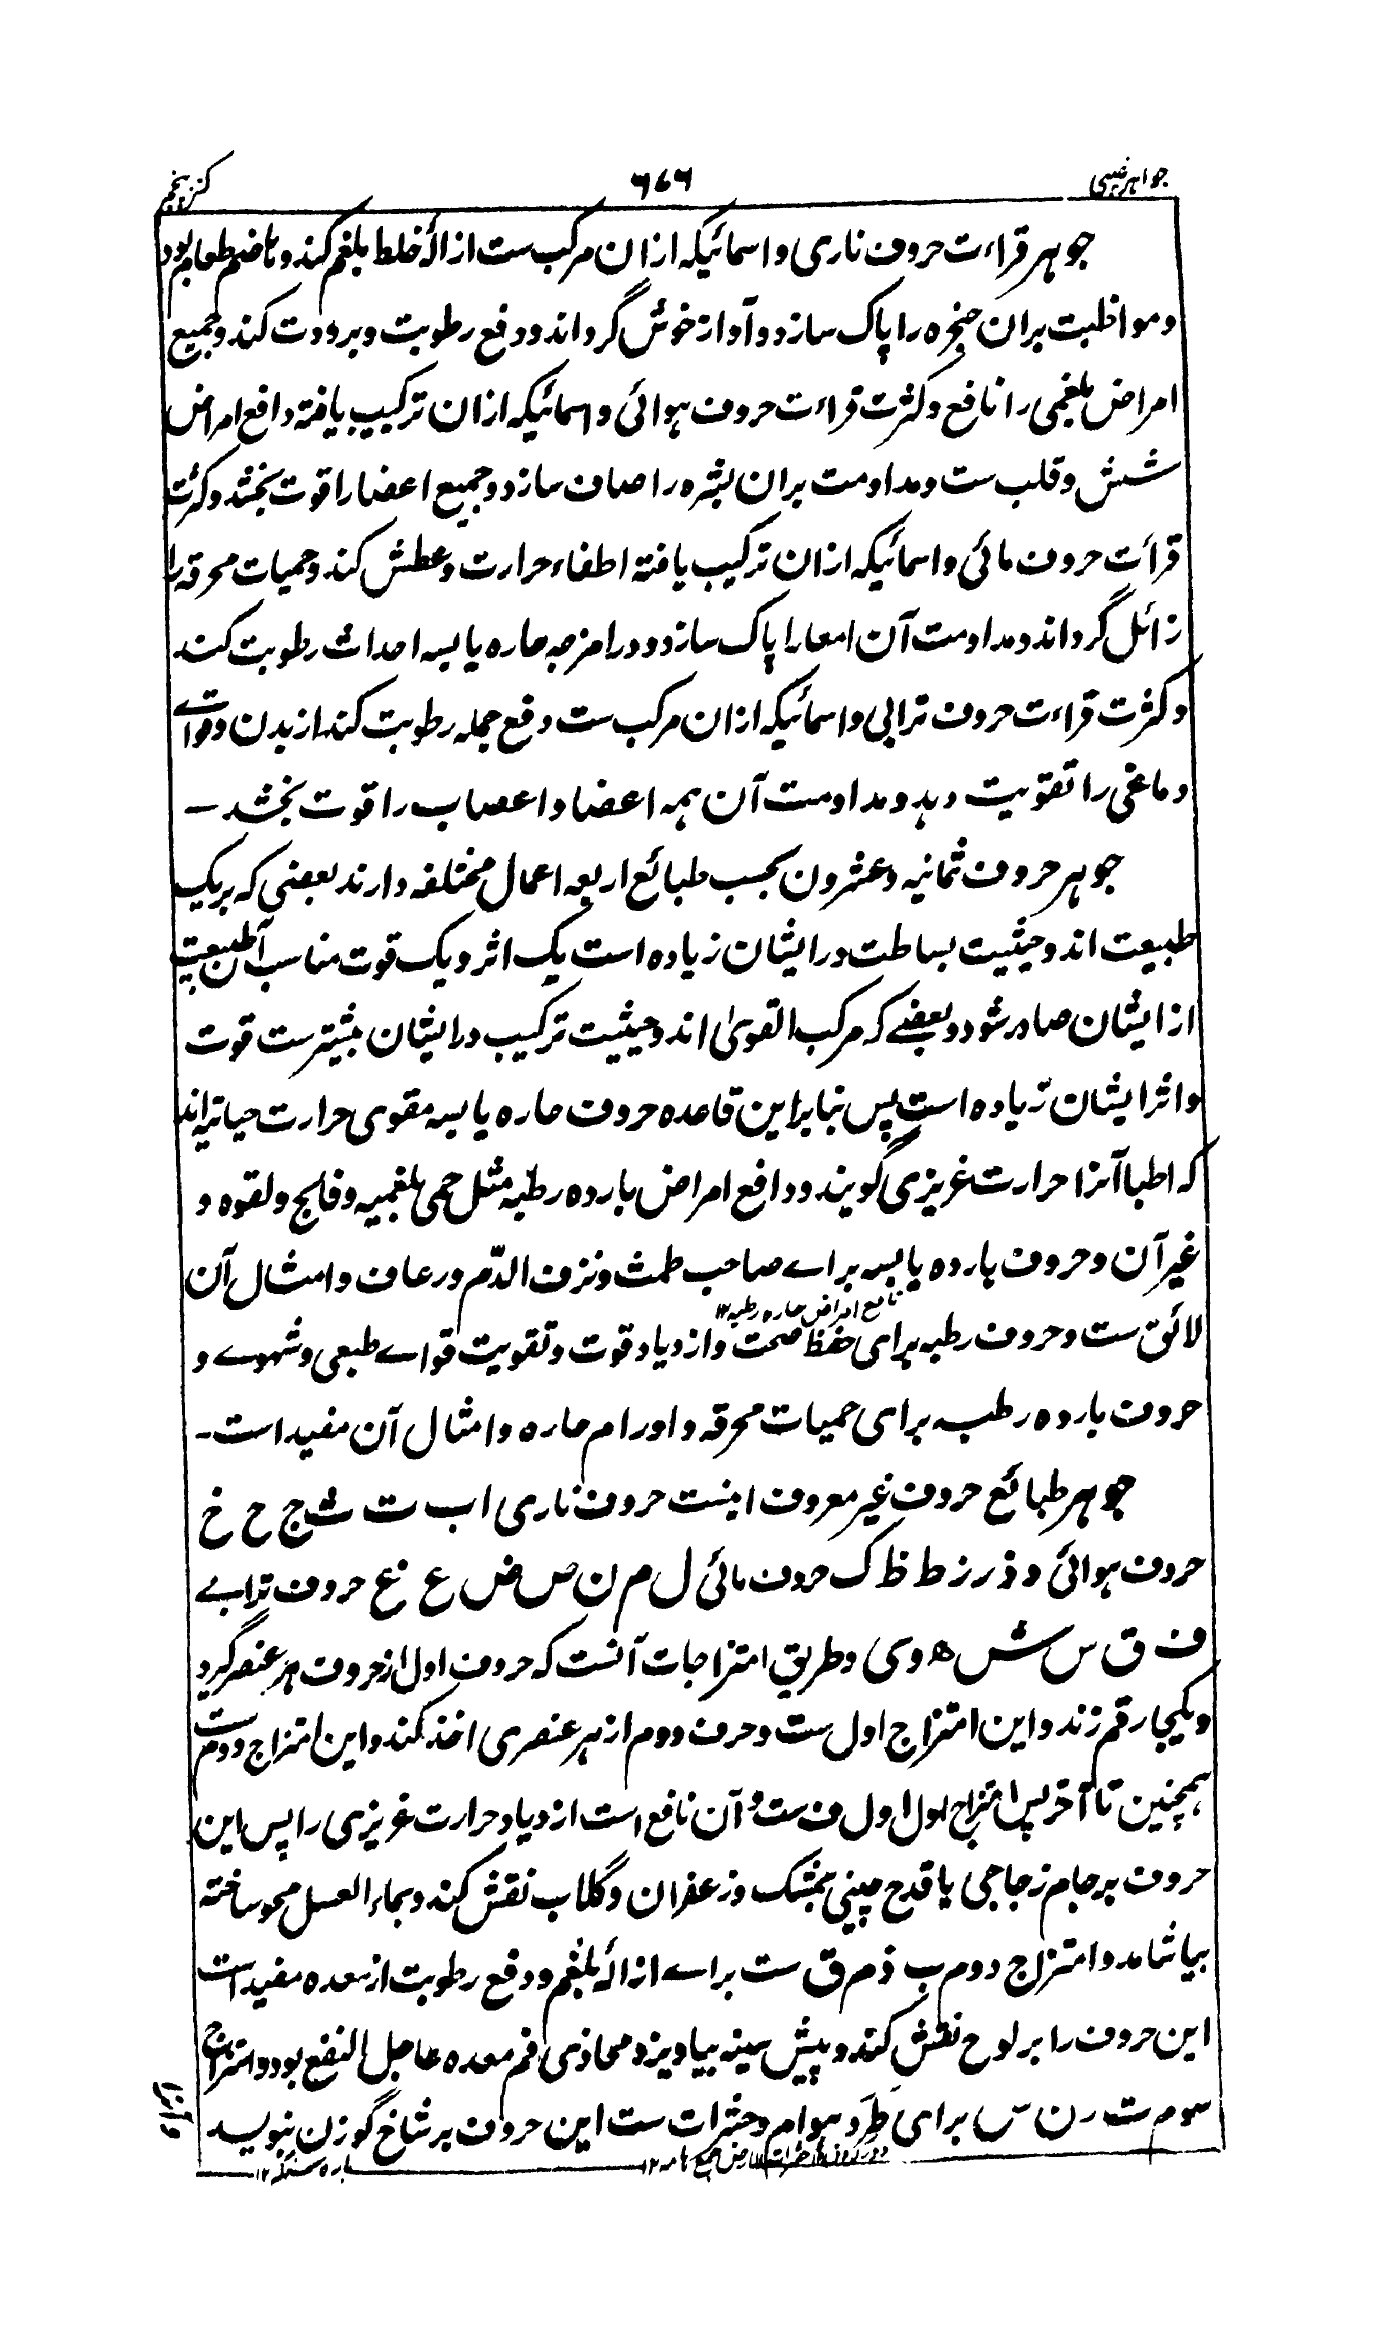 جواہر غیبی
٦٧٦
کنز پنجم
جوہر قراءت حروف ناری و اسمائیکہ ازان مرکب ست ازالۂ خلط بلغم کند و ہاضم طعام بود
و مواظبت بران حنجرہ را پاک سازد و آواز خوش گرداند و دفع رطوبت و برودت کند و جمیع
امراض بلغمی را نافع و کثرت قراءت حروف ہوائی و اسمائیکہ ازان ترکیب یافتہ دافع امراض
شش و قلب ست و مداومت بران بشرہ را صاف سازد و جمیع اعضا را قوت بخشد و کثرت
قرأت حروف مائی و اسمائیکہ ازان ترکیب یافتہ اطفاء حرارت و عطش کند و حمیات محرقہ را
زائل گرداند و مداومت آن امعا را پاک سازد و در امزجہ حارہ یابسہ احداث رطوبت کند
و کثرت قراءت حروف ترابی و اسمائیکہ ازان مرکب ست دفع جملہ رطوبت کند از بدن و قواے
دماغی را تقویت دہد و مداومت آن ہمہ اعضا و اعصاب را قوت بخشد –
جوہر حروف ثمانیہ و عشرون بحسب طبائع اربعہ اعمال مختلفہ دارند بعضی کہ بر یک
طبیعت اند و حیثیت بساطت در ایشان زیادہ است یک اثر و یک قوت مناسب آن طبیعت
از ایشان صادر شود و بعضے کہ مرکب القویٰ اند و حیثیت ترکیب در ایشان بیشتر ست قوت
و اثر ایشان زیادہ است پس بنا براین قاعدہ حروف حارہ یابسہ مقوی حرارت حیاتیہ اند
کہ اطبا آنرا حرارت غریزی گویند و دافع امراض باردہ رطبہ مثل حمی بلغمیہ و فالج و لقوہ و
غیر آن و حروف باردہ یابسہ براے صاحب طمث و نزف الدّم و رعاف و امثال آن
نافع امراض حارہ رطبہ ١٢
لائق ست و حروف رطبہ برای حفظ صحت و ازدیاد قوت و تقویت قواے طبعی و شہوے و
حروف باردہ رطبہ برای حمیات محرقہ و اورام حارہ و امثال آن مفید است –
جوہر طبائع حروف غیر معروف اینست حروف ناری ا ب ت ث ج ح خ
حروف ہوائی د ذ ر ز ط ظ ک حروف مائی ل م ن ص ض ع غ حروف ترابے
ف ق س ش ہ و ی و طریق امتزاجات آنست کہ حروف اول از حروف ہر عنصر گیرد
و یکجا رقم زند و این امتزاج اول ست و حرف دوم از ہر عنصری اخذ کند و این امتزاج دوم ست
ہمچنین تا آخر پس امتزاج اول ا د ل ف ست و آن نافع است ازدیاد حرارت غریزی را پس این
حروف بر جام زجاجی یا قدح چینی بمشک و زعفران و گلاب نقش کند و بماء العسل محو ساختہ
بیاشامد و امتزاج دوم ب ذ م ق ست براے ازالۂ بلغم و دفع رطوبت از معدہ مفید است
این حروف را بر لوح نقش کند و پیش سینہ بیاویزد محاذی فم معدہ عاجل النفع بود و امتزاج
سوم ت ر ن س برای طرد ہوام و حشرات ست این حروف بر شاخ گوزن بنویسد
بارہ سنگہ ١٢